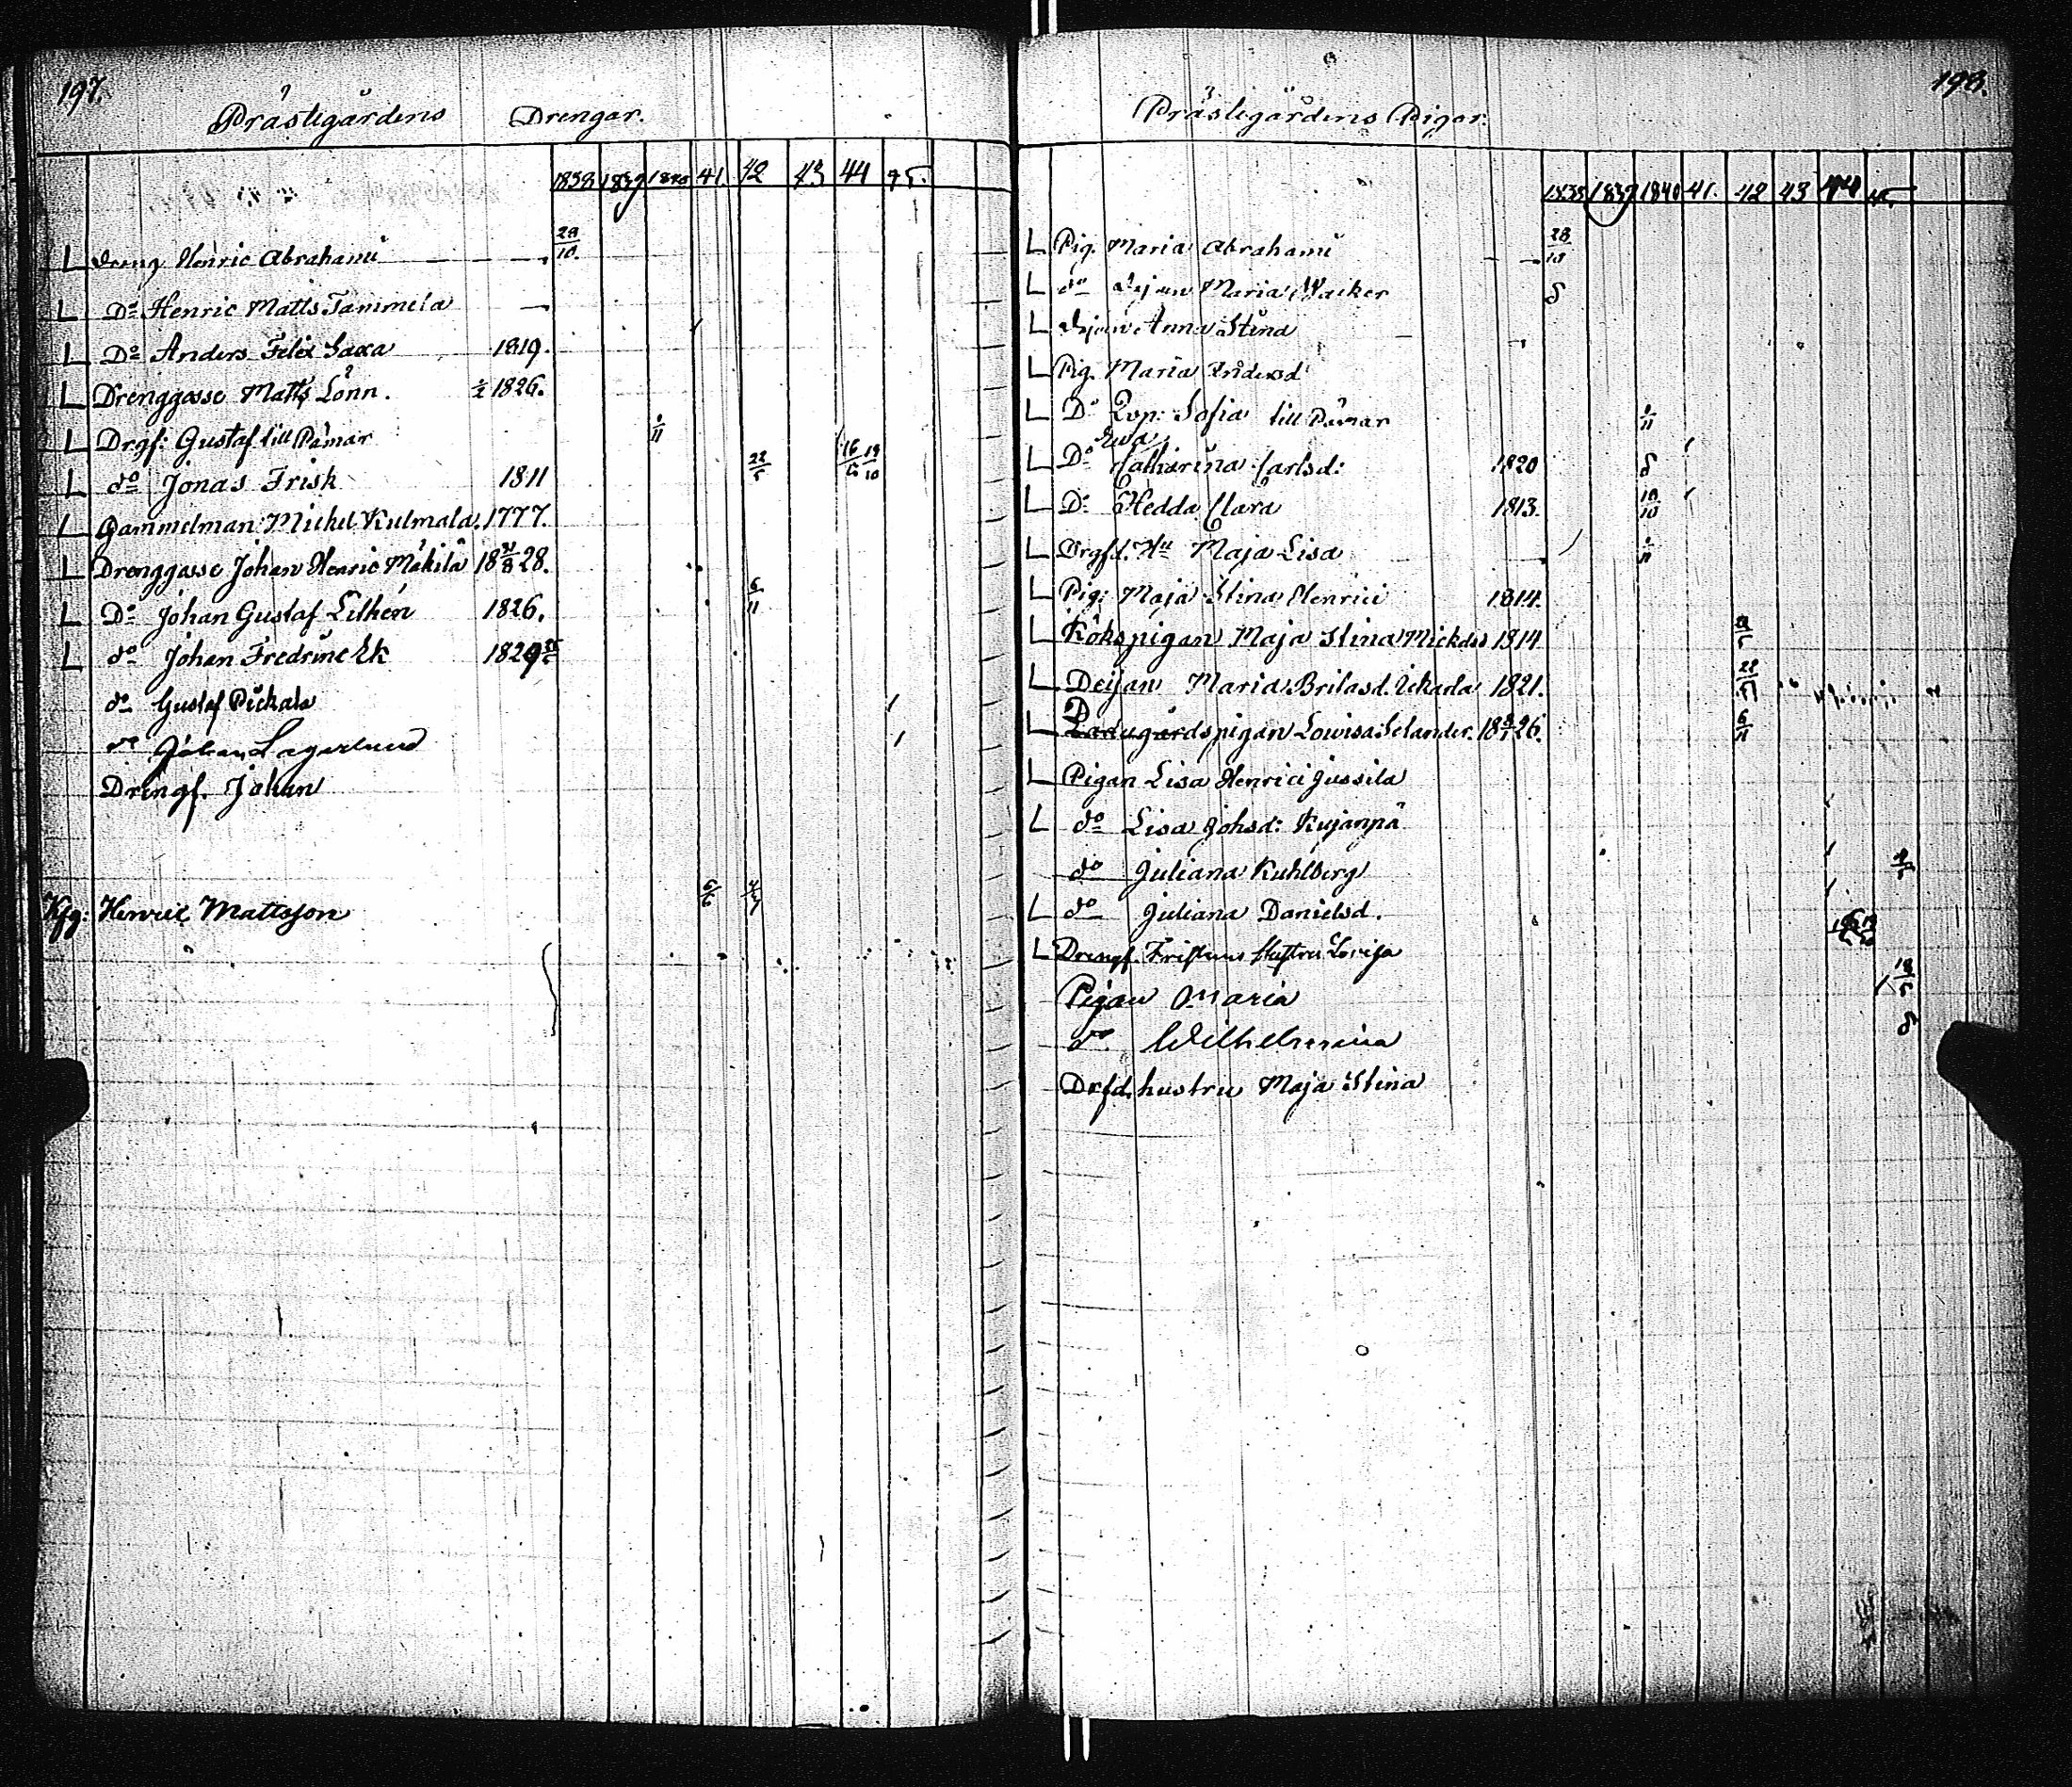 197.
Prästegårdens Drengar.
1838 1839 1840 41. 42 43 44 45.
L Dreng Henric Abrahami — — — 28/10.
L Do Henric Matts Tammela —
L Do Anders Felix Saxa 1819.
L Drenggosse Matts Lönn. 1826.
L Drgf: Gustaf till Påmar 1/11
L do Jonas Frisk 1811 22/5 16/5 19/10
L Gammelman Michel Kulmala. 1777.
L Drenggosse Johan Henric Mäkilä 18 28.
L Do Johan Gustaf Lithén 1826. 6/11
L do Johan Fredric Ek 1829
do Gustaf Pickala
do Johan Lagerlund
Drengf. Johan
Henric Mattsson
198.
Prästegårdens Pigor.
1838 1839 1840 41. 42 43 45.
L Pig. Maria Abrahami — 28/10
L do Dejan Maria Wacker
L Dejan Anna Stina
L Pig. Maria Andersd
L Do Sofia till Påmar 1/11
L Do Ewa Catharina Carlsd: 1820
L Do Hedda Clara 1813. 10/10
L Drgfd. Hu Maja Lisa 1/11
L Pig: Maja Stina Henrici 1814.
L Kökspigan Maja Stina Mickels 1814
L Deijan Maria Britasd. Uckarla 1821. 22/5
L Ladugårdspigan Lowisa Selander. 18 26. 6/11
L Pigan Lisa Henrici Jussila
L do Lisa Johsd: Kujanpä
do Juliana Kuhlberg
L do Juliana Danielsd.
L Drengf. Hustru Lovisa
Pigan Maria
do Wilhelmina
Drfd. hustru Maja Stina